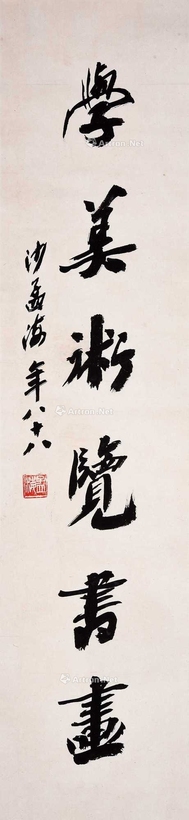 學美術覽書畫
沙孟海年八十八
Artron.Net